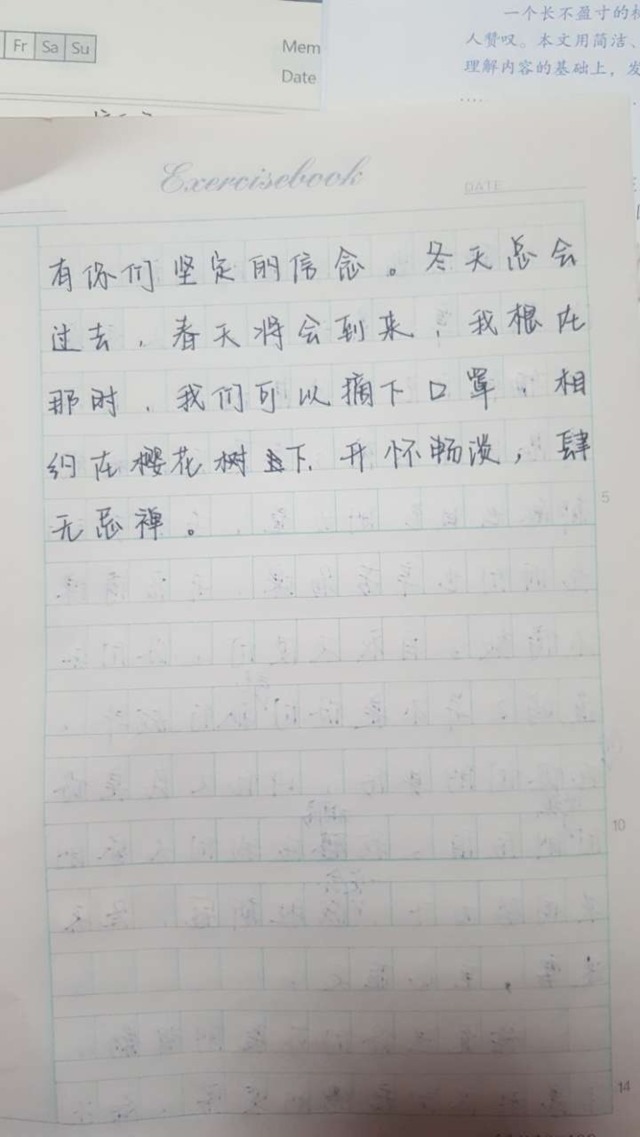 Fr Sa Su
Mem
Date
一个长不盈寸的
人赞叹。本文用简洁、
理解内容的基础上，发
Exercisebook
DATE
有你们坚定的信念。冬天总会
过去，春天将会到来，我根在
那时，我们可以摘下口罩，相
约在樱花树下，开怀畅谈，肆
无忌禅。
5
10
14